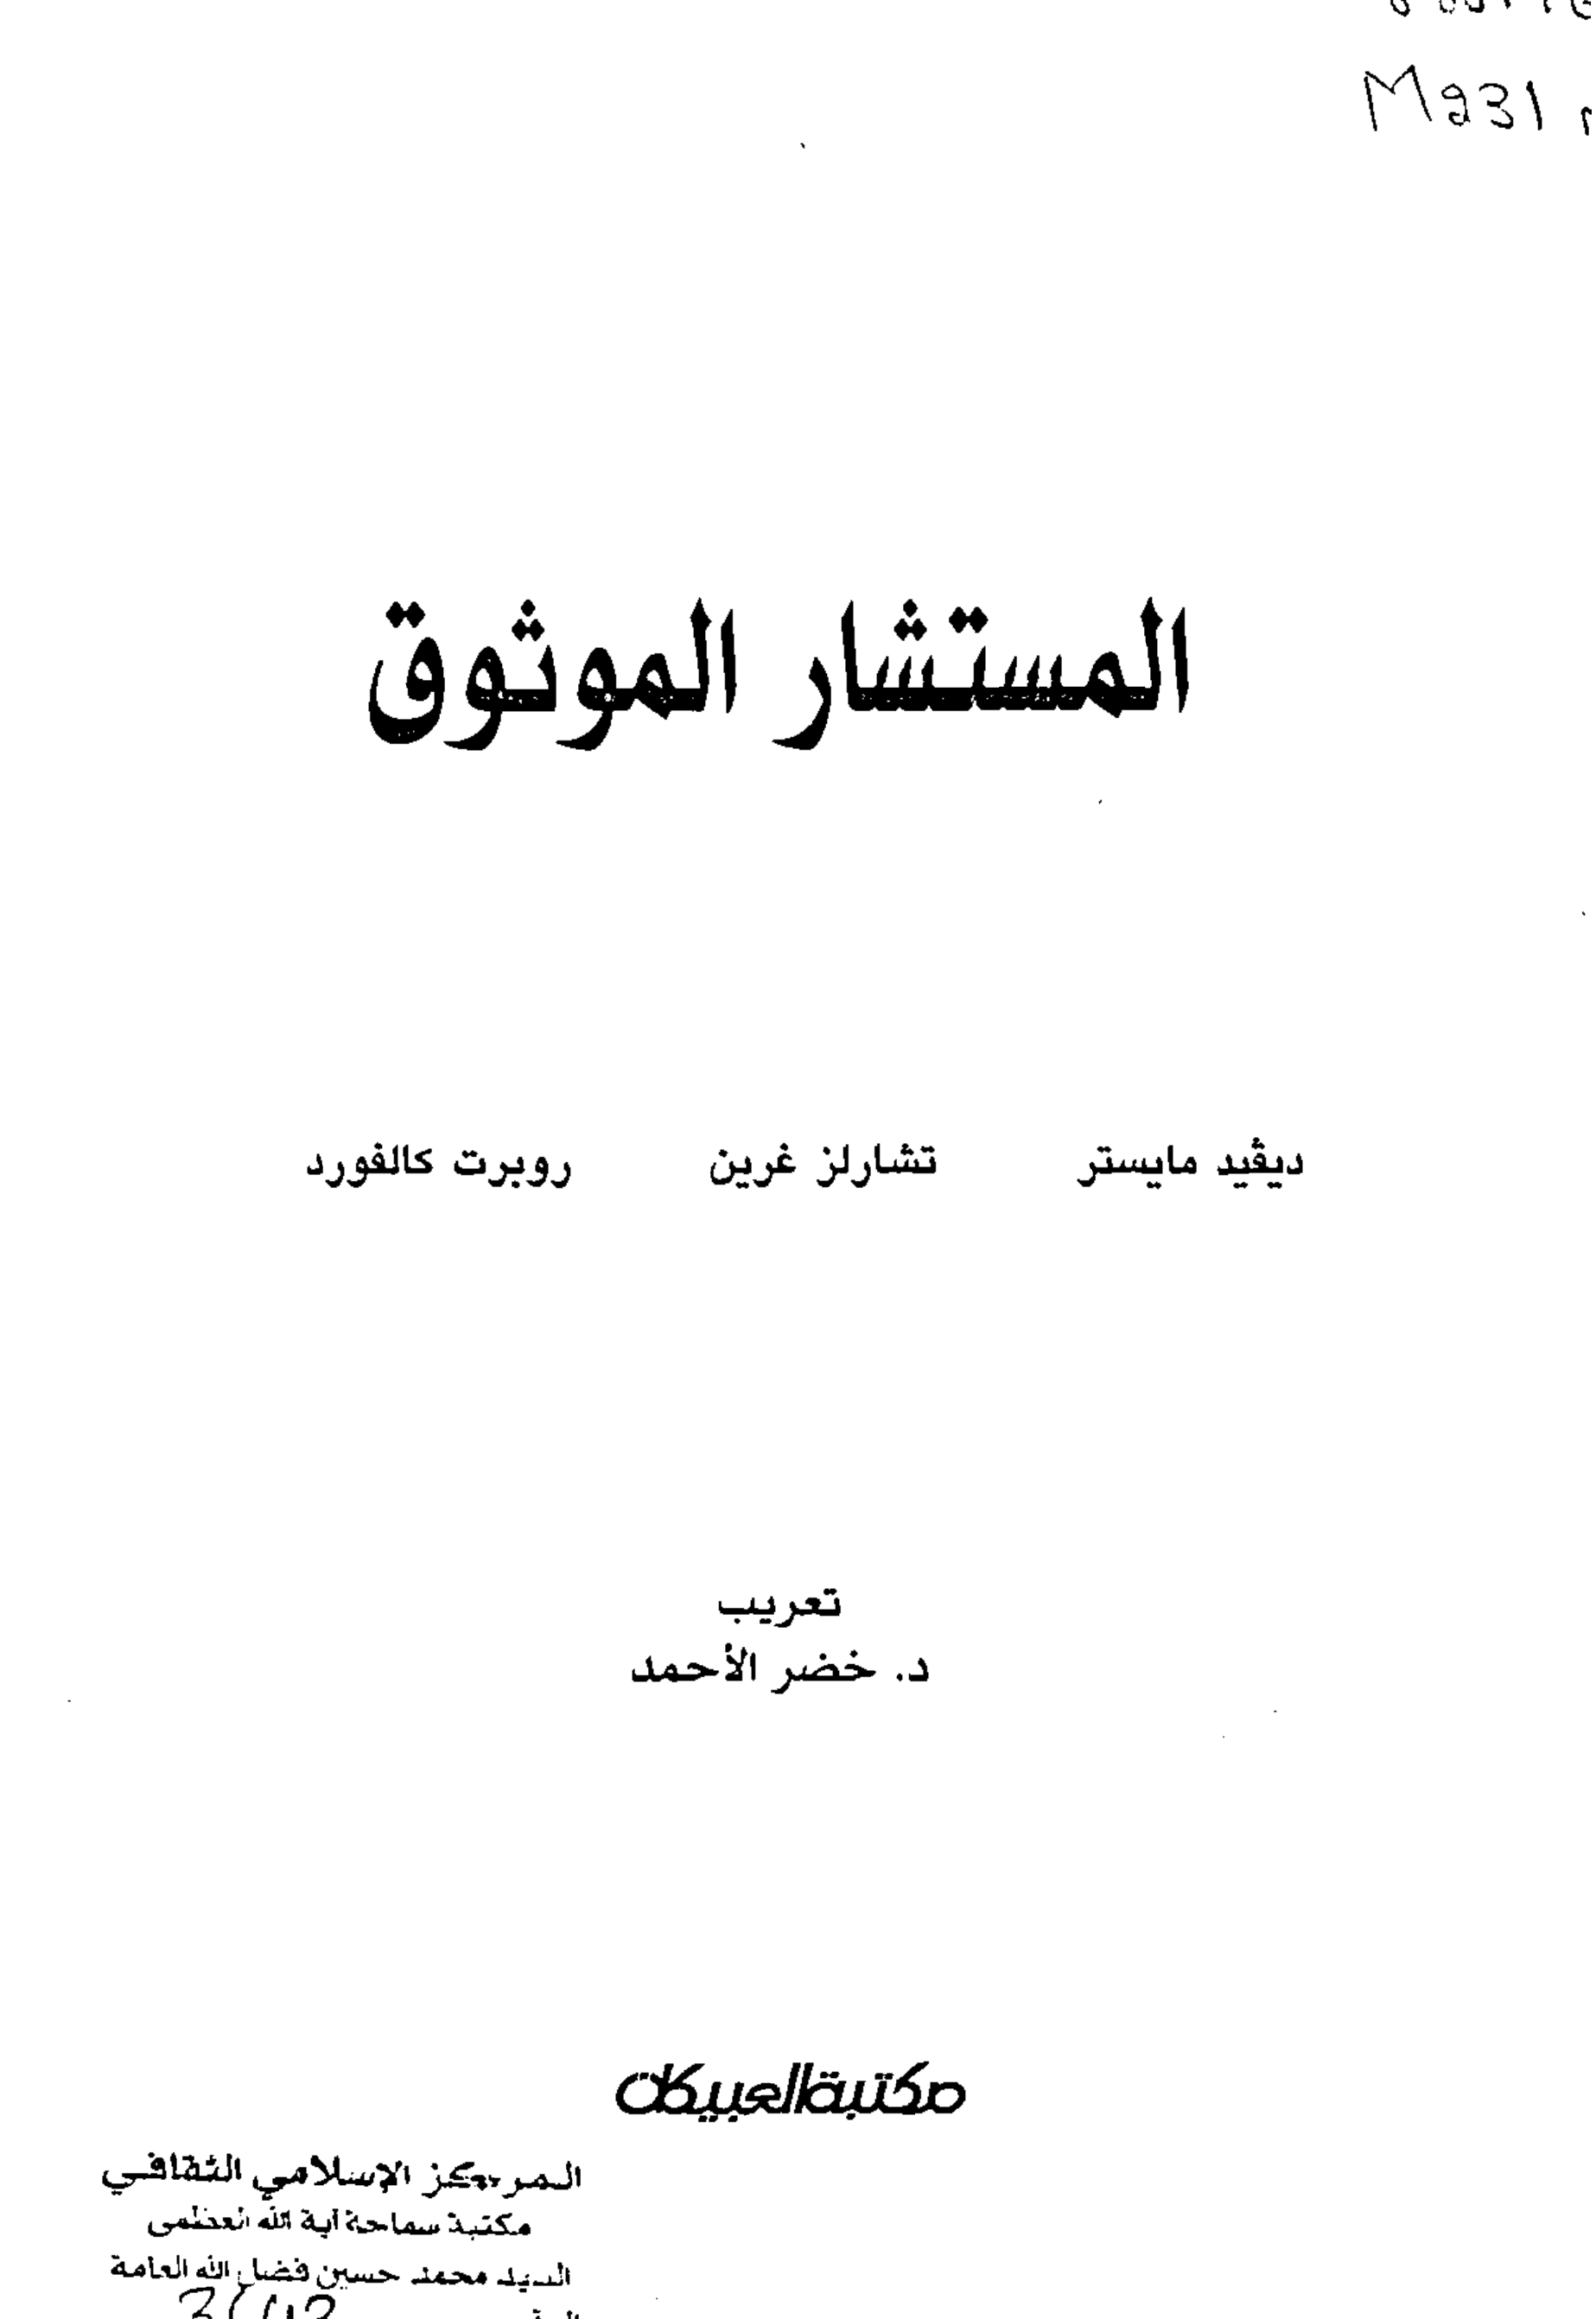 M231
المستشار الموثوق
ديڤيد مايستر تشارلز غرين روبرت كالفورد
تعريب
د. خضر الأحمد
مكتبة العبيكان
المركز الإسلامي الثقافي
مكتبة سماحة آية الله العظمى
السيد محمد حسين فضل الله العامة